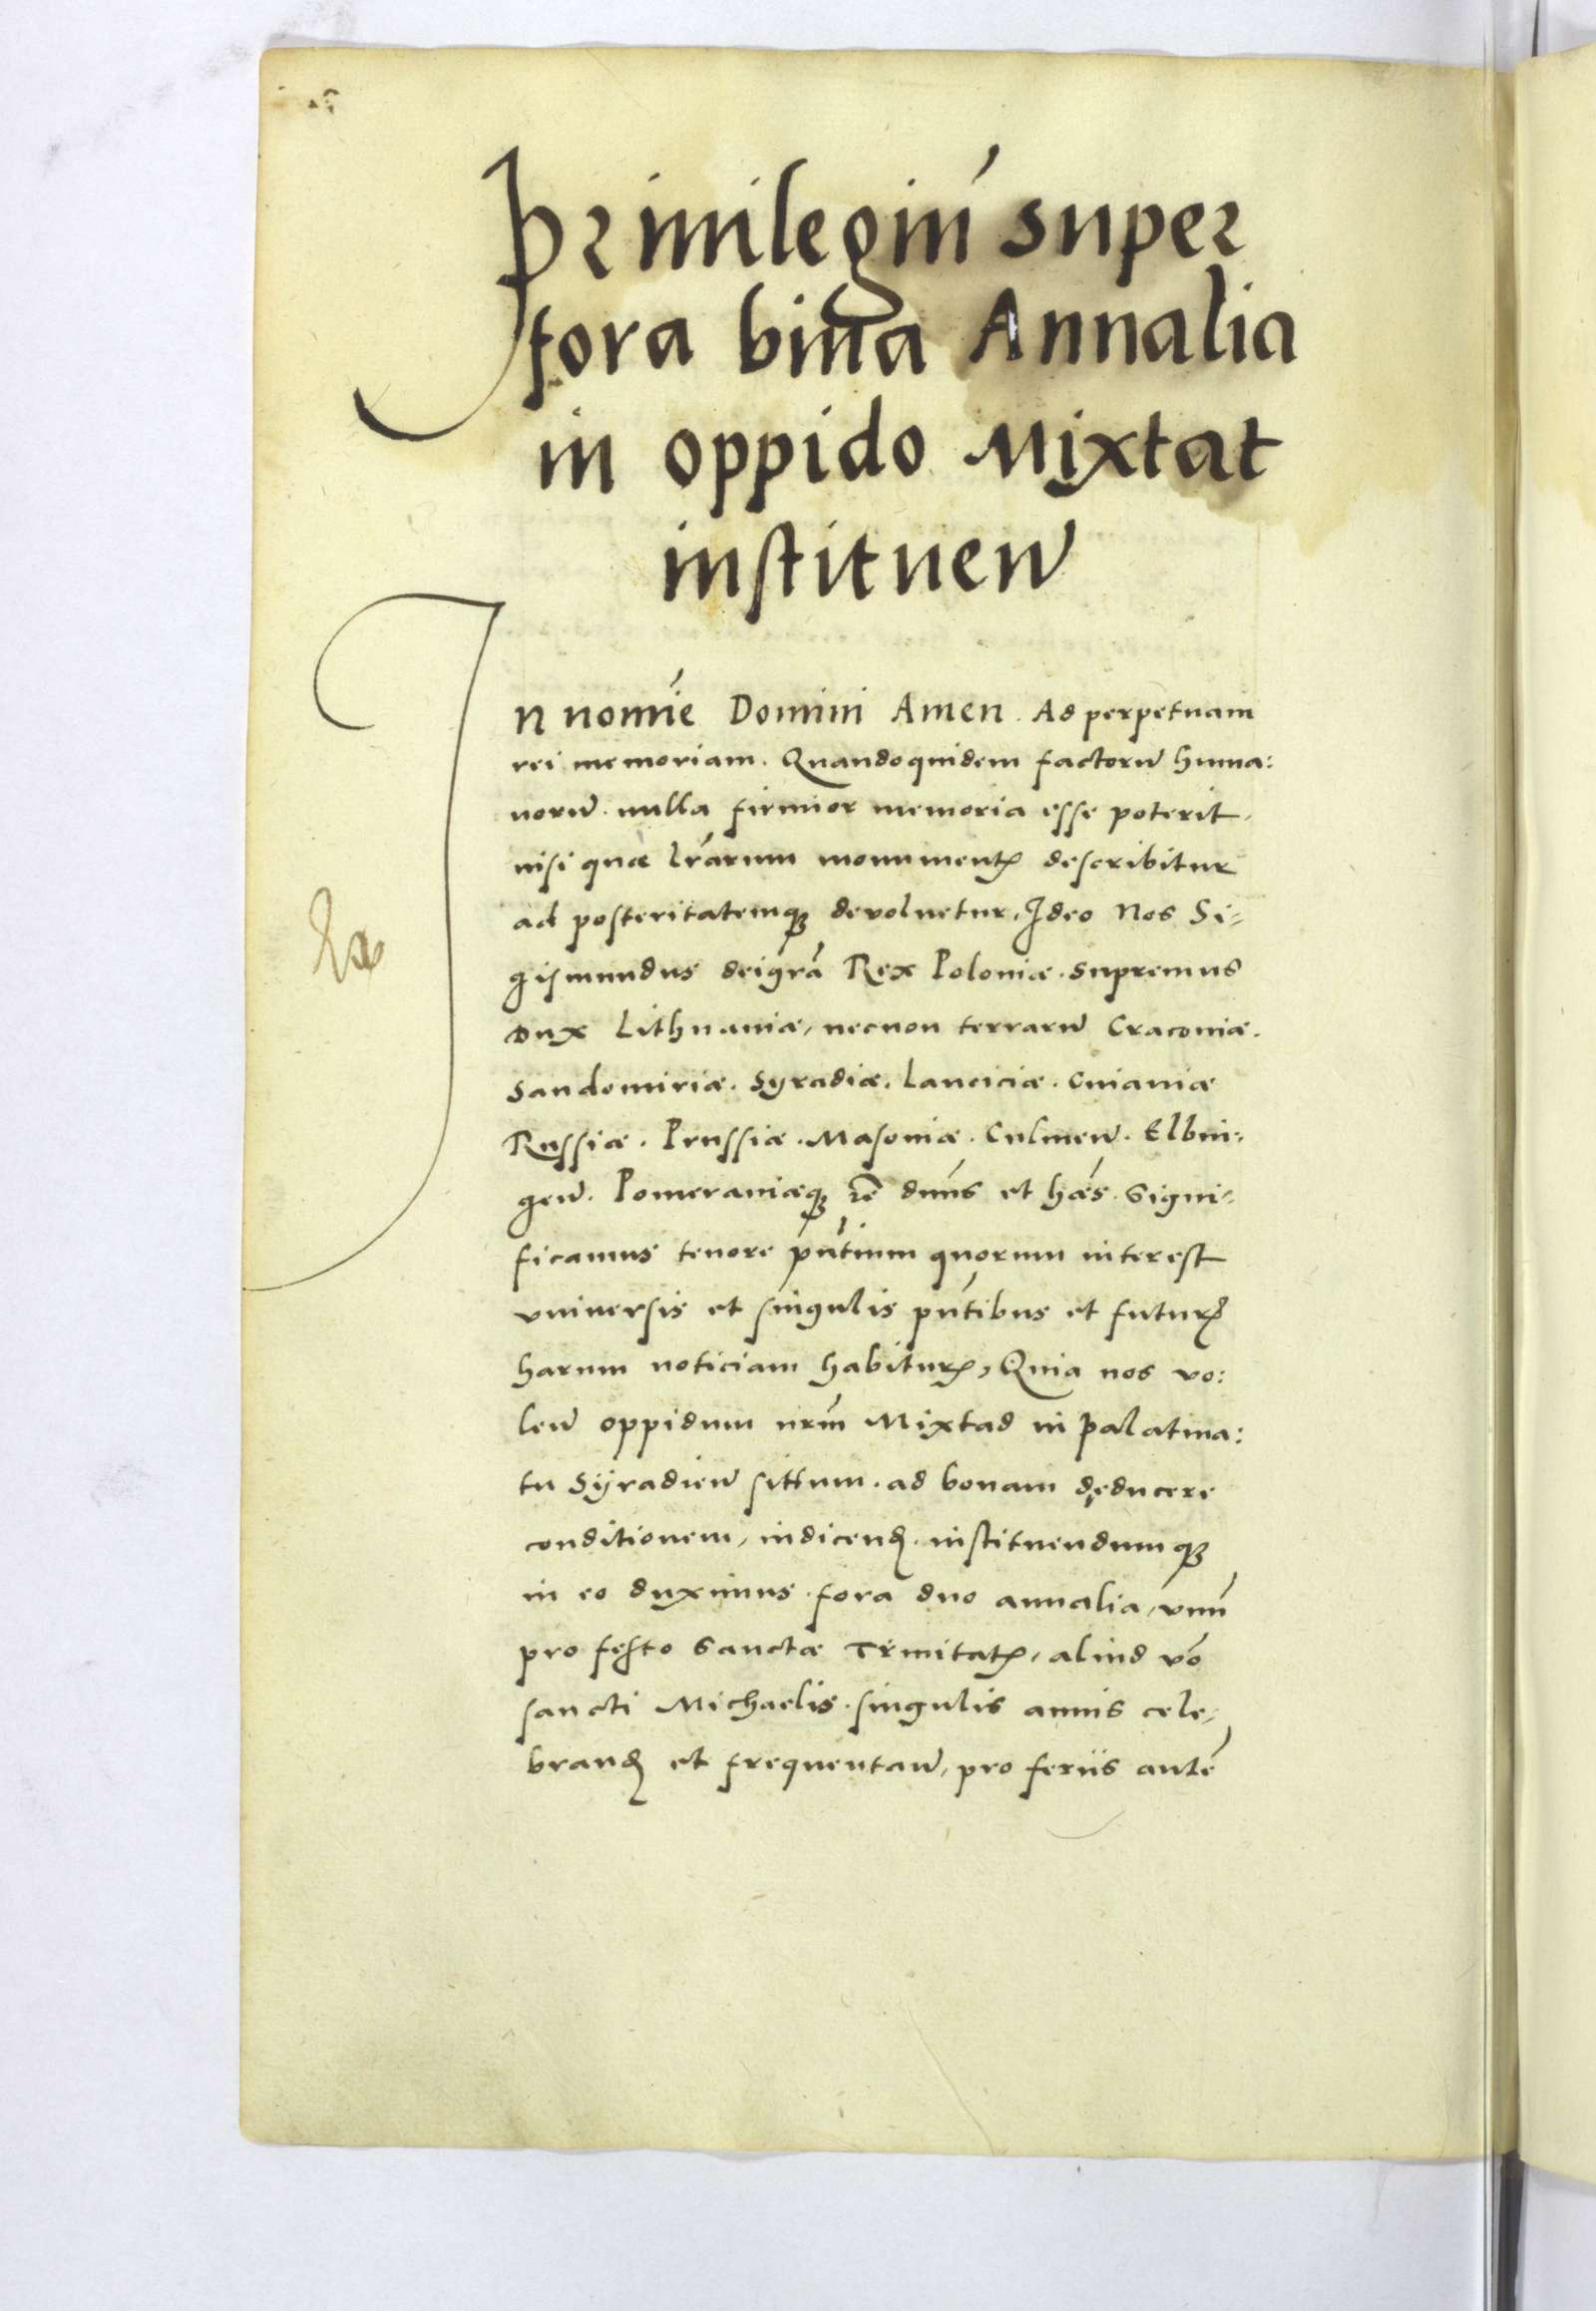 Priuilegiu̅ super
fora bina Annalia
in oppido Mixtat
instituen̅
In nomi̅e Domini Amen. Ad perpetuam
rei memoriam. Quandoquidem factoru̅ huma:
noru̅ nulla firmior memoria esse poterit,
nisi quæ lr̅arum monumentꝭ describitur
ad posteritatemqꝫ devoluetur, Ideo Nos Si-
gismundus deigr̅a Rex Poloniæ. supremus
Dux Lithuaniæ, necnon terraru̅ Cracouiæ.
Sandomiriæ. Syradiæ. Lanciciæ. Cuiauiæ
Russiæ. Prussiæ. Masouiæ. Culmen̅. Elbin-
gen̅. Pomeraniæqꝫ zc̅ dn̅us et hæ̅s. Signi-
ficamus tenore pn̅tium quorum interest
vniuersis et singulis pn̅tibus et futurꝭ
harum noticiam habiturꝭ, Quia nos vo:
len̅ oppidum nr̅m Mixtad in palatina:
tu Syradien̅ situm. ad bonam deducere
conditionem, indicend̅. instituendumqꝫ
in eo duximus. fora duo annalia, vnu̅
pro festo Sanctæ Trinitatꝭ, aliud vo̅
sancti Michaelis. singulis annis cele-
brand̅ et frequentan̅, pro feriis aute̅